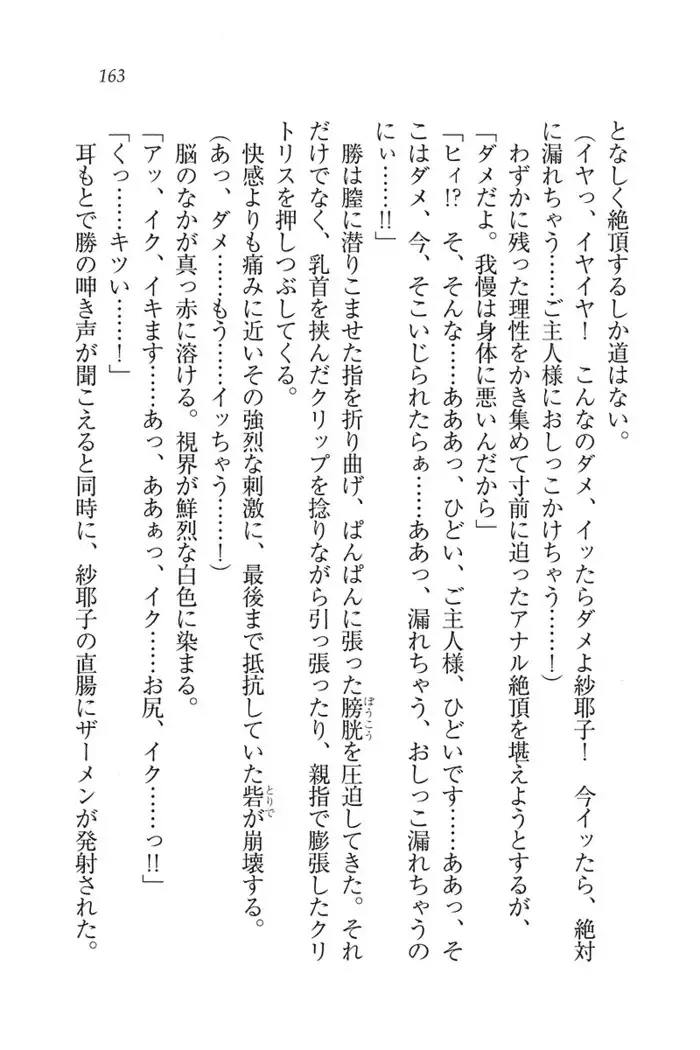 163
となしく絶頂するしか道はない。
(イヤっ、イヤイヤ! こんなのダメ、イッたらダメよ紗耶子! 今イッたら、絶対
に漏れちゃう……ご主人様におしっこかけちゃう……!)
わずかに残った理性をかき集めて寸前に迫ったアナル絶頂を堪えようとするが、
「ダメだよ。我慢は身体に悪いんだから」
「ヒィ!? そ、そんな……あああっ、ひどい、ご主人様、ひどいです……ああっ、そ
こはダメ、今、そこいじられたらぁ……ああっ、漏れちゃう、おしっこ漏れちゃうの
にぃ……!!」
勝は膣に潜りこませた指を折り曲げ、ぱんぱんに張った膀胱ぼうこうを圧迫してきた。それ
だけでなく、乳首を挟んだクリップを捻りながら引っ張ったり、親指で膨張したクリ
トリスを押しつぶしてくる。
快感よりも痛みに近いその強烈な刺激に、最後まで抵抗していた砦とりでが崩壊する。
(あっ、ダメ……もう……イッちゃう……!)
脳のなかが真っ赤に溶ける。視界が鮮烈な白色に染まる。
「アッ、イク、イキます……あっ、ああぁっ、イク……お尻、イク……っ!!」
「くっ……キツい……!」
耳もとで勝の呻き声が聞こえると同時に、紗耶子の直腸にザーメンが発射された。